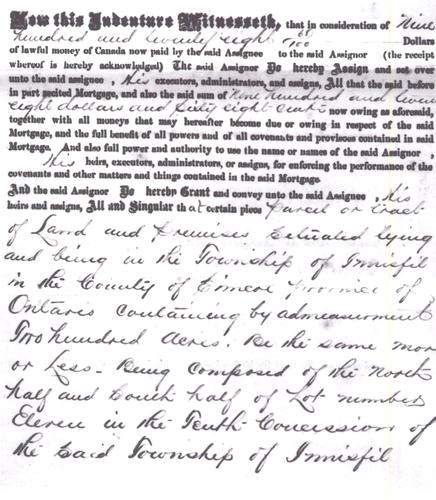 Now this Indenture Witnesseth, that in consideration of Nine
hundred and twenty eight 68/100 Dollars
of lawful money of Canada now paid by the said Assignee to the said Assignor (the receipt
whereof is hereby acknowledged) The said Assignor Do hereby Assign and set over
unto the said assignee, His executors, administrators, and assigns, All that the said before
in part recited Mortgage, and also the said sum of Nine hundred and twen
eight dollars and sixty eight cents now owing as aforesaid,
together with all moneys that may hereafter become due or owing in respect of the said
Mortgage, and the full benefit of all powers and of all covenants and provisoes contained in said
Mortgage. And also full power and authority to use the name or names of the said Assignor,
His heirs, executors, administrators, or assigns, for enforcing the performance of the
covenants and other matters and things contained in the said Mortgage.
And the said Assignor Do hereby Grant and convey unto the said Assignee, His
heirs and assigns, All and Singular that certain piece Parcel or tract
of Land and Premises Situated lying
and being in the Township of Innisfil
in the County of Simcoe Province of
Ontario containing by admeasurment
Two hundred Acres. Be the same mor
or Less. Being composed of the North
half and South half of Lot number
Eleven in the Tenth Concession of
the Said Township of Innisfil